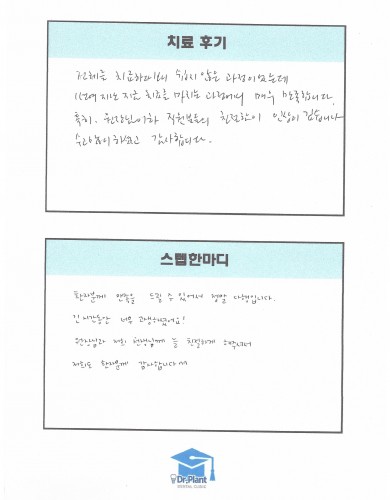 치료 후기
전체를 치료하다보니 쉽지 않은 과정이었는데
1년여 지난 지금 치료를 마치는 과정에서 매우 만족합니다.
특히. 원장님이하 직원분들의 친절함이 인상이 깊습니다
수고많이하셨고 감사합니다.
스탭한마디
환자분께 만족을 드릴 수 있어서 정말 다행입니다.
긴시간동안 너무 고생하셨어요!
원장님과 저희 선생님께 늘 친절하게
저희도 환자분께 감사합니다^^
Dr.Plant
DENTAL CLINIC